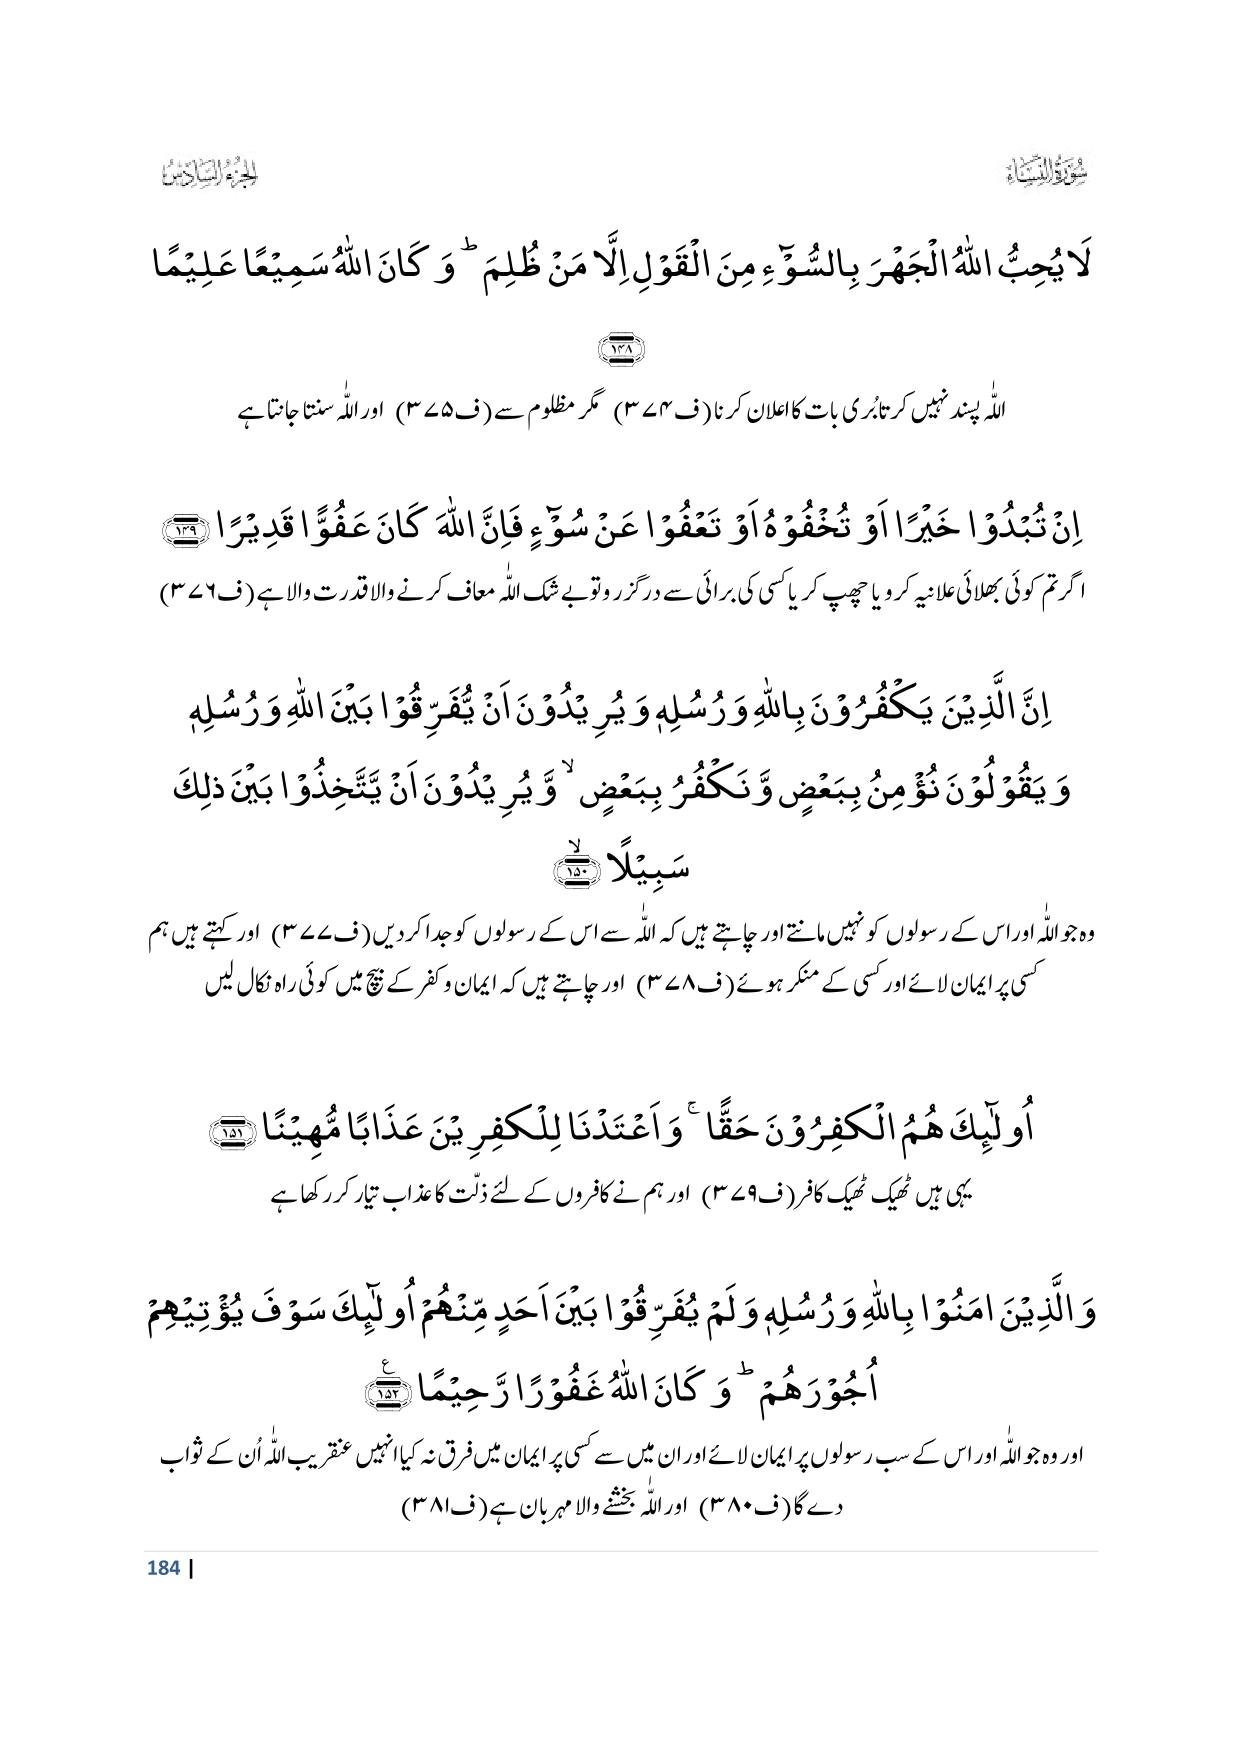 سُوْرَةُ النِّسَآء
اَلْجُزْءُ السَّادِسُ
لَا یُحِبُّ اللّٰهُ الْجَهْرَ بِالسُّوْٓءِ مِنَ الْقَوْلِ اِلَّا مَنْ ظُلِمَ ؕ وَ كَانَ اللّٰهُ سَمِیْعًا عَلِیْمًا
﴿۱۴۸﴾
اللّٰہ پسند نہیں کرتا بُری بات کا اعلان کرنا (ف۳۷۴) مگر مظلوم سے (ف۳۷۵) اور اللّٰہ سنتا جانتا ہے
اِنْ تُبْدُوْا خَیْرًا اَوْ تُخْفُوْهُ اَوْ تَعْفُوْا عَنْ سُوْٓءٍ فَاِنَّ اللّٰهَ كَانَ عَفُوًّا قَدِیْرًا ﴿۱۴۹﴾
اگر تم کوئی بھلائی علانیہ کرو یا چھپ کر یا کسی کی برائی سے درگزرو تو بے شک اللّٰہ معاف کرنے والا قدرت والا ہے (ف۳۷۶)
اِنَّ الَّذِیْنَ یَكْفُرُوْنَ بِاللّٰهِ وَ رُسُلِهٖ وَ یُرِیْدُوْنَ اَنْ یُّفَرِّقُوْا بَیْنَ اللّٰهِ وَ رُسُلِهٖ
وَ یَقُوْلُوْنَ نُؤْمِنُ بِبَعْضٍ وَّ نَكْفُرُ بِبَعْضٍ ۙ وَّ یُرِیْدُوْنَ اَنْ یَّتَّخِذُوْا بَیْنَ ذٰلِكَ
سَبِیْلًا ﴿۱۵۰﴾ۙ
وہ جو اللّٰہ اور اس کے رسولوں کو نہیں مانتے اور چاہتے ہیں کہ اللّٰہ سے اس کے رسولوں کو جدا کردیں (ف۳۷۷) اور کہتے ہیں ہم
کسی پر ایمان لائے اور کسی کے منکر ہوئے (ف۳۷۸) اور چاہتے ہیں کہ ایمان و کفر کے بیچ میں کوئی راہ نکال لیں
اُولٰٓىِٕكَ هُمُ الْكٰفِرُوْنَ حَقًّا ۚ وَ اَعْتَدْنَا لِلْكٰفِرِیْنَ عَذَابًا مُّهِیْنًا ﴿۱۵۱﴾
یہی ہیں ٹھیک ٹھیک کافر (ف۳۷۹) اور ہم نے کافروں کے لئے ذلّت کا عذاب تیار کر رکھا ہے
وَ الَّذِیْنَ اٰمَنُوْا بِاللّٰهِ وَ رُسُلِهٖ وَ لَمْ یُفَرِّقُوْا بَیْنَ اَحَدٍ مِّنْهُمْ اُولٰٓىِٕكَ سَوْفَ یُؤْتِیْهِمْ
اُجُوْرَهُمْ ؕ وَ كَانَ اللّٰهُ غَفُوْرًا رَّحِیْمًا ﴿۱۵۲﴾ع
اور وہ جو اللّٰہ اور اس کے سب رسولوں پر ایمان لائے اور ان میں سے کسی پر ایمان میں فرق نہ کیا انہیں عنقریب اللّٰہ اُن کے ثواب
دے گا (ف۳۸۰) اور اللّٰہ بخشنے والا مہربان ہے (ف۳۸۱)
184 |